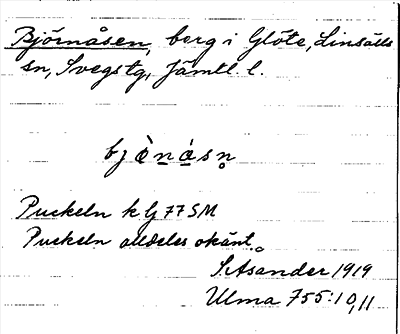 Björnåsen, berg i Glöte, Linsälls
sn, Svegs tg, Jämtl. l.
bjὲ̀nȧsn̥
Puckeln k G 77 SM
Puckeln alldeles okänt.
S. Åsander 1919
Ulma 755:10,11